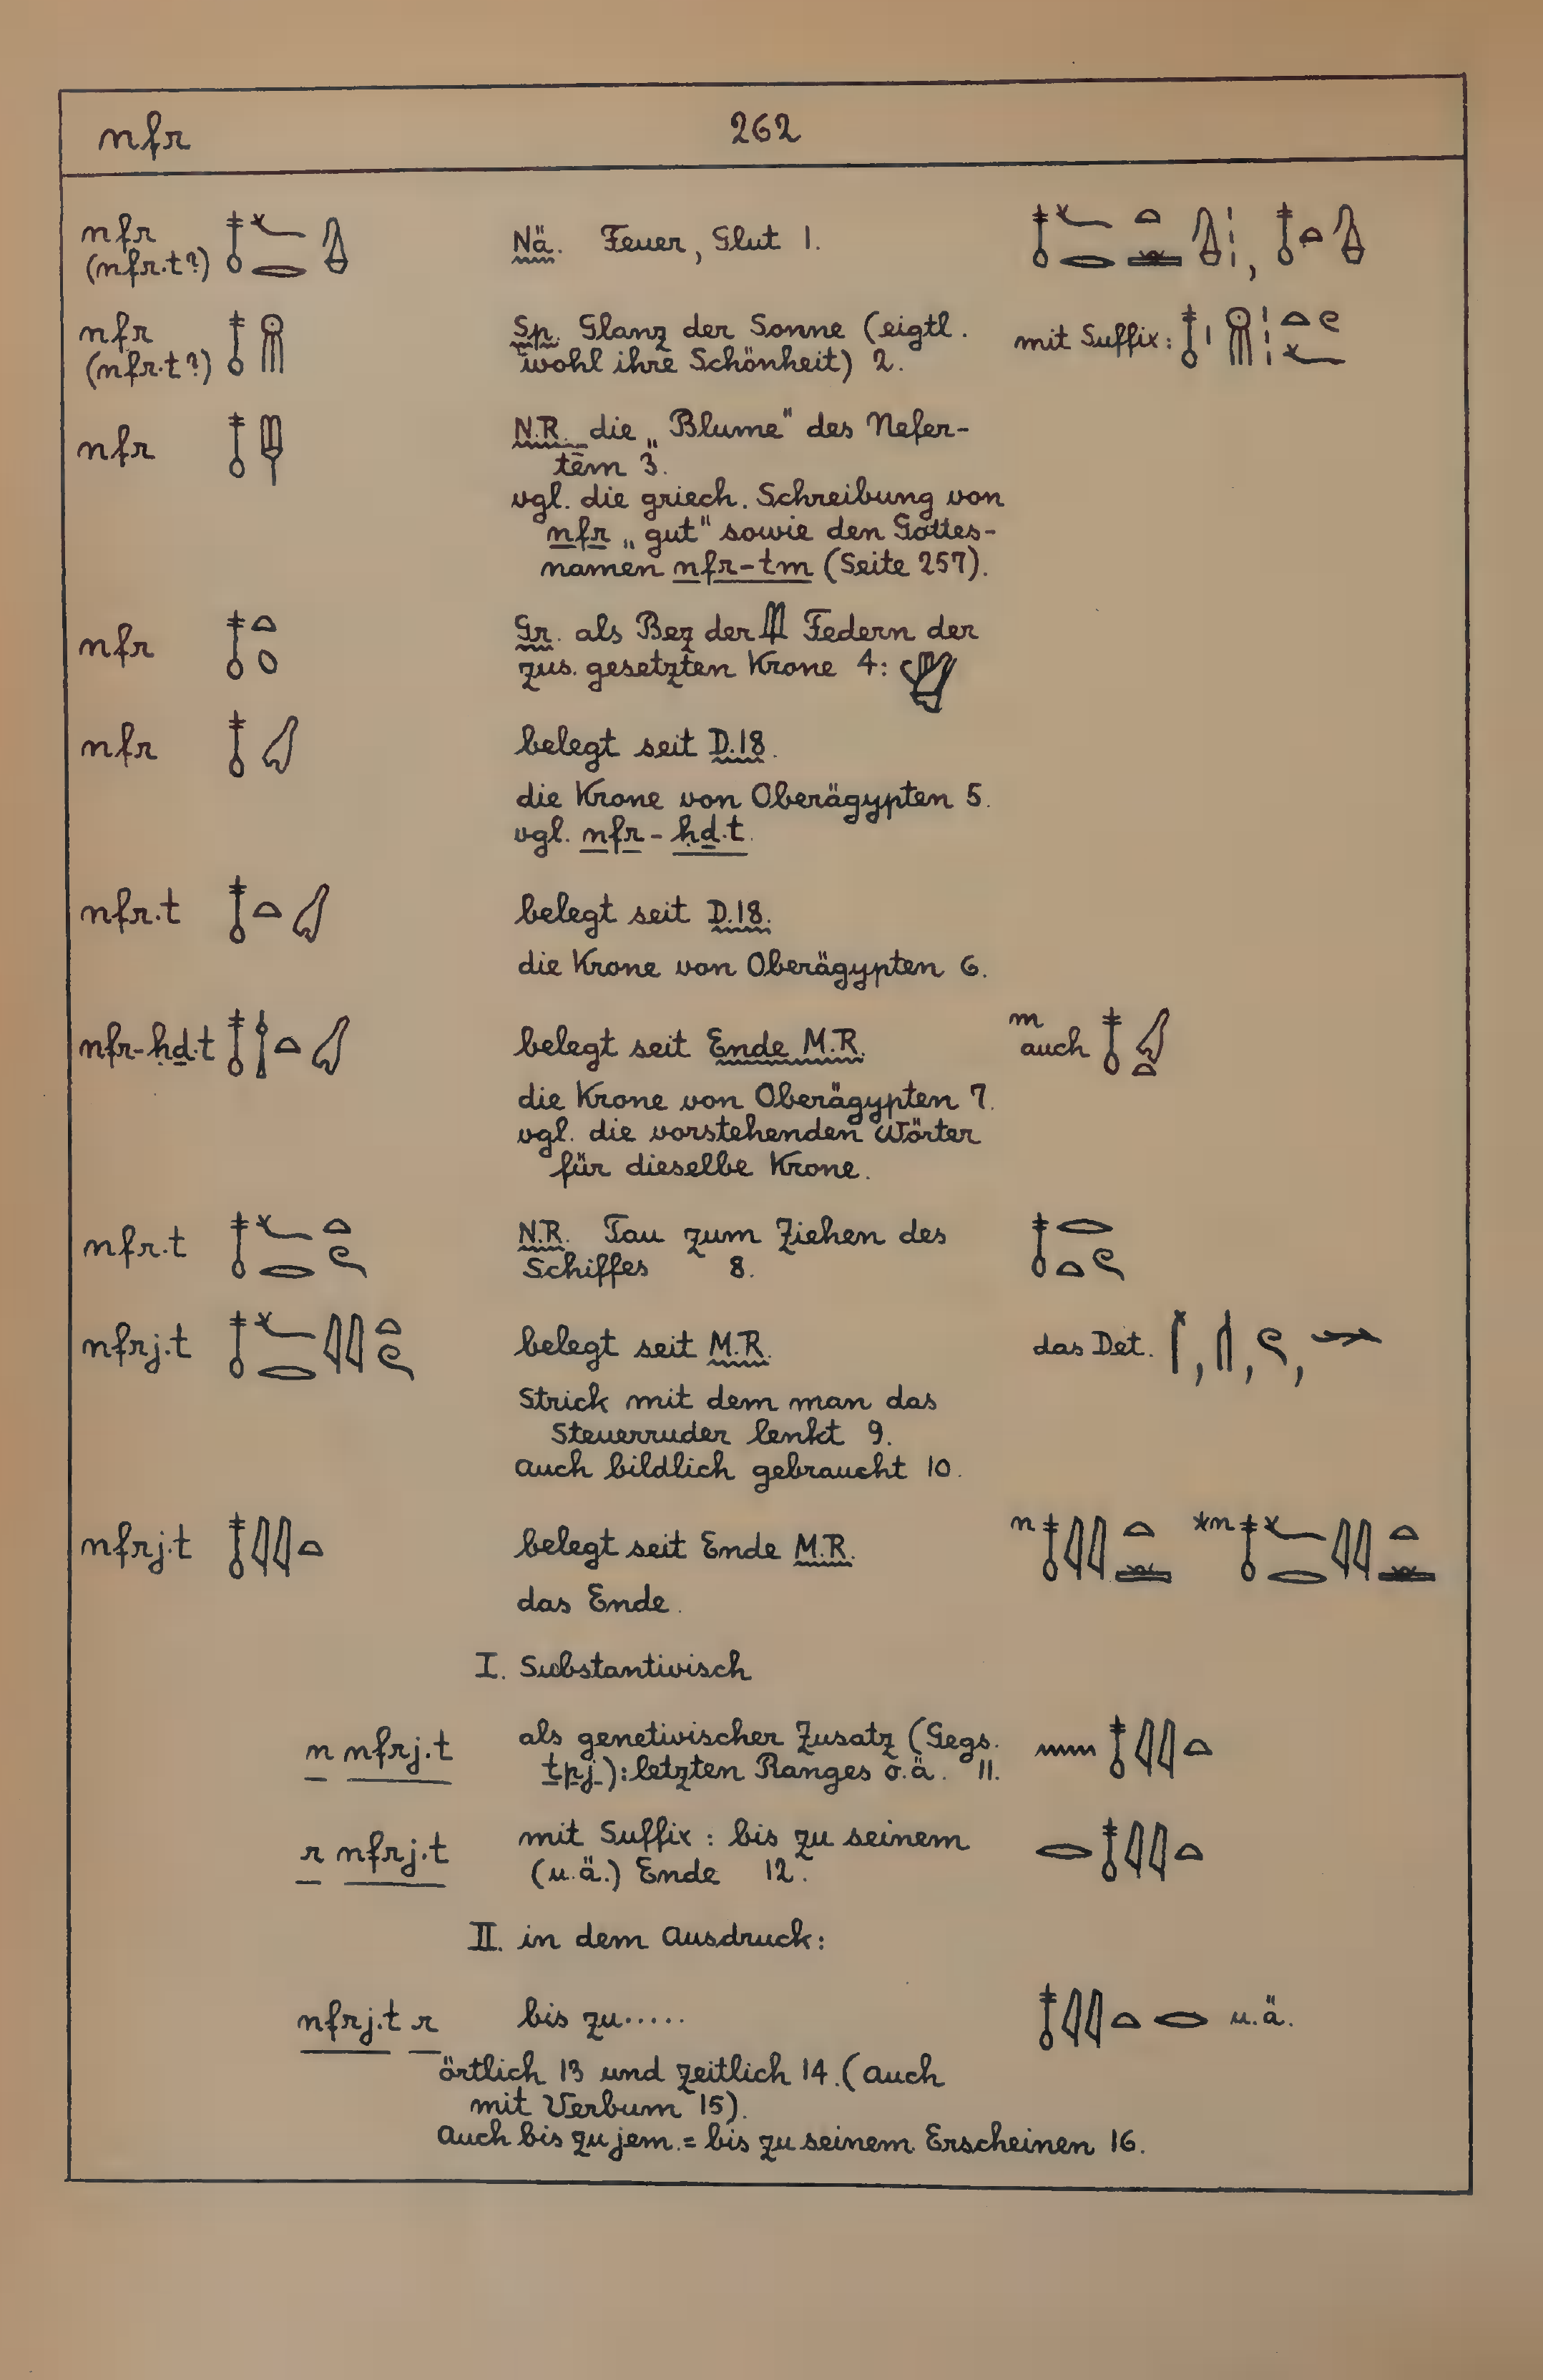 nfr 262
nfr
(nfr.t?)
Nä. Feuer, Glut 1.
nfr
(nfr.t?)
Sp. Glanz der Sonne (eigtl.
wohl ihre Schönheit) 2.
mit Suffix:
nfr
N.R. die „Blume" des Nefer-
tēm 3.
vgl. die griech. Schreibung von
nfr „gut" sowie den Gottes-
namen nfr-tm (Seite 257).
nfr
Gr. als Bez der Federn der
zus. gesetzten Krone 4:
nfr
belegt seit D.18.
die Krone von Oberägypten 5.
vgl. nfr-ḥḏ.t.
nfr.t
belegt seit D.18.
die Krone von Oberägypten 6.
nfr-ḥḏ.t
belegt seit Ende M.R.
m
auch
die Krone von Oberägypten 7.
vgl. die vorstehenden Wörter
für dieselbe Krone.
nfr.t
N.R. Tau zum Ziehen des
Schiffes 8.
nfrj.t
belegt seit M.R.
das Det. , , ,
Strick mit dem man das
Steuerruder lenkt 9.
auch bildlich gebraucht 10.
nfrj.t
belegt seit Ende M.R.
n *n
das Ende.
I. Substantivisch
n nfrj.t
als genetivischer Zusatz (Gegs.
tpj): letzten Ranges o.ä. 11.
r nfrj.t
mit Suffix: bis zu seinem
(u.ä.) Ende 12.
II. in dem Ausdruck:
nfrj.t r
bis zu.....
u.ä.
örtlich 13 und zeitlich 14. (auch
mit Verbum 15).
Auch bis zu jem. = bis zu seinem Erscheinen 16.